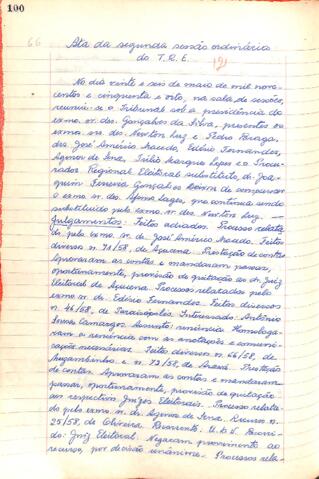 100
66
Ata da segunda sessão ordinária
do T. R. E.
No dia vinte e seis de maio de mil nove-
centos e cinquenta e oito, na sala de sessões,
reuniu-se o Tribunal sob a presidência do
exmo. sr. des. Gonçalves da Silva, presentes os
exmos. srs. des. Newton Luz e Pedro Braga,
drs. José Américo Macedo, Edésio Fernandes,
Agenor de Sena, Túlio Marques Lopes e o Procu-
rador Regional Eleitoral substituto, dr. Joa-
quim Ferreira Gonçalves. Deixou de comparecer
o exmo. sr. des. Afonso Lages, que continua sendo
substituído pelo exmo. sr. des. Newton Luz. —
Julgamentos: Feitos adiados. Processo relata-
do pelo exmo. sr. dr. José Américo Macedo. Feitos
diversos n. 78/58, de Açucena. Prestação de contas.
Aprovaram as contas e mandaram passar,
oportunamente, provisão de quitação ao dr. Juiz
Eleitoral de Açucena. Processos relatados pelo
exmo. sr. dr. Edésio Fernandes. Feitos diversos
n. 46/58, de Interessado: Antônio
Camargos. Assunto: renúncia. Homologa-
ram a renúncia com as anotações e comuni-
cações necessárias. Feitos diversos n. 66/58, de
e n. 73/58, de Araxá. Prestação
de contas. Aprovaram as contas e mandaram
passar, oportunamente, provisão de quitação
aos respectivos Juízes Eleitorais. Processo relata-
do pelo exmo. sr. dr. Agenor de Sena. Recurso n.
25/58, de Oliveira. Recorrente: U. D. N. Recorri-
do: Juiz Eleitoral. Negaram provimento ao
recurso, por decisão unânime. Processos rela-